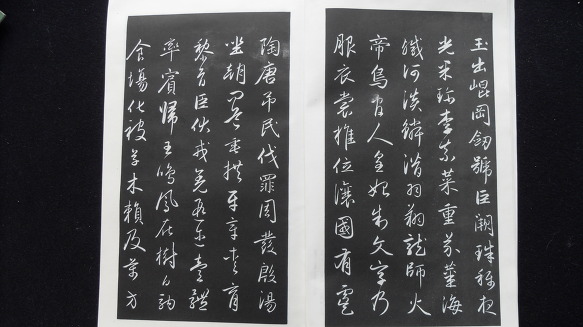 玉出崐岡劒號巨闕珠稱夜
光果珍李柰菜重芥薑海
鹹河淡鱗潛羽翔龍師火
帝鳥官人皇始制文字乃
服衣裳推位讓國有虞
陶唐吊民伐罪周發殷湯
坐朝問道垂拱平章愛育
黎首臣伏戎羌遐邇壹體
率賓歸王鳴鳳在樹白駒
食場化被草木賴及萬方